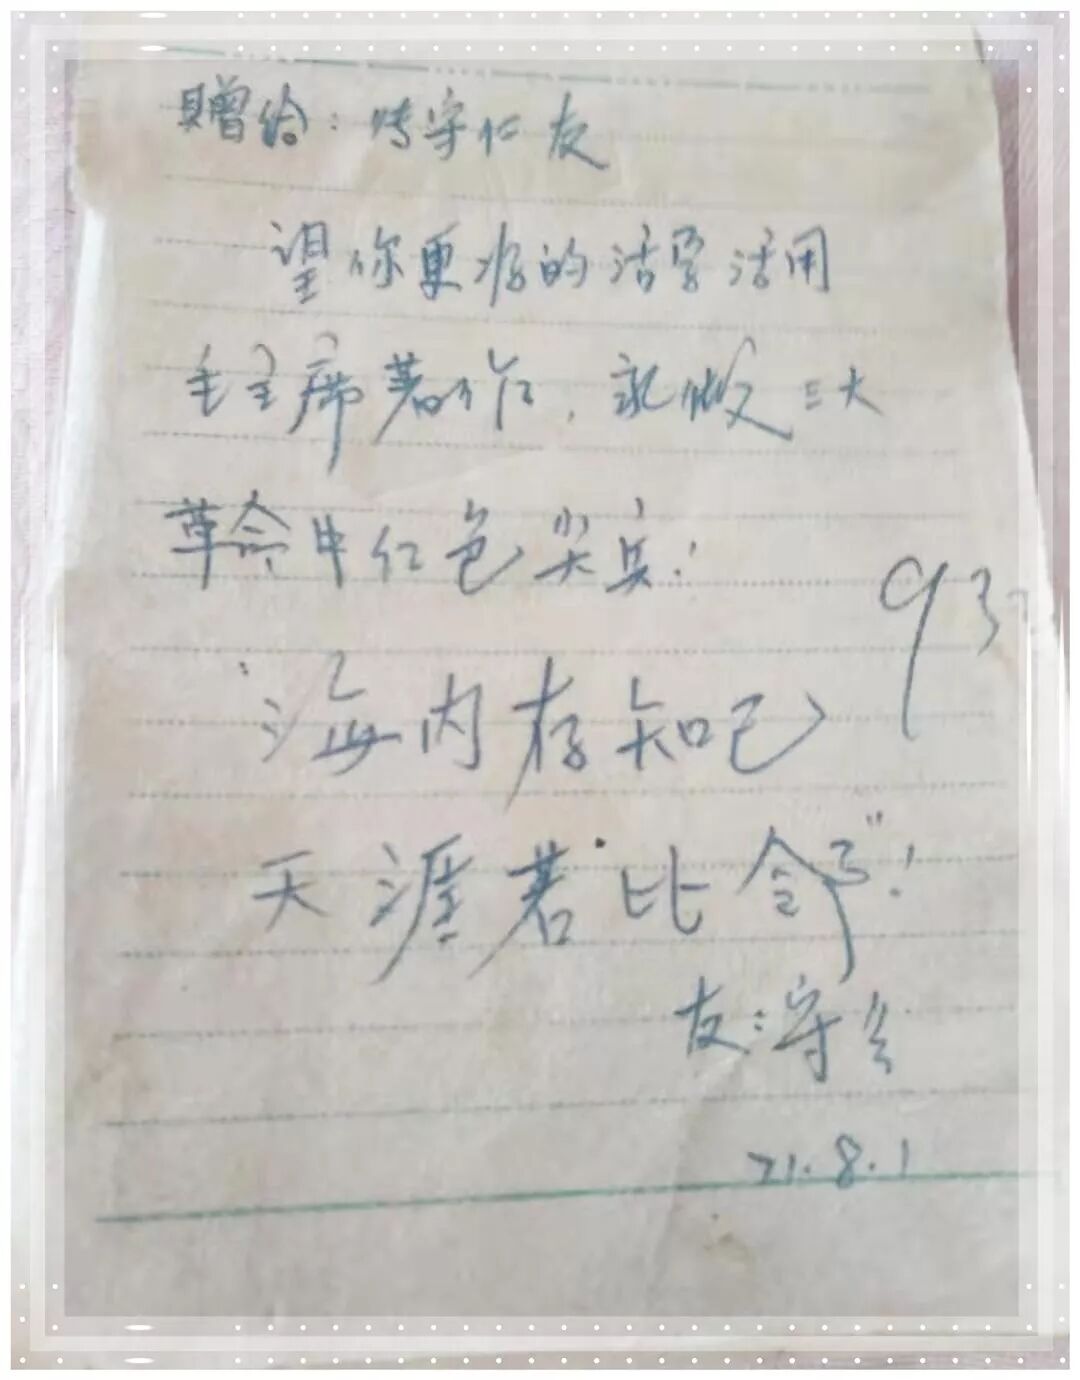 赠给：守仁友
望你更好的活学活用
毛主席著作，永做三大
革命中红色尖兵！
93
“海内存知己
天涯若比邻”！
友：守
71.8.1